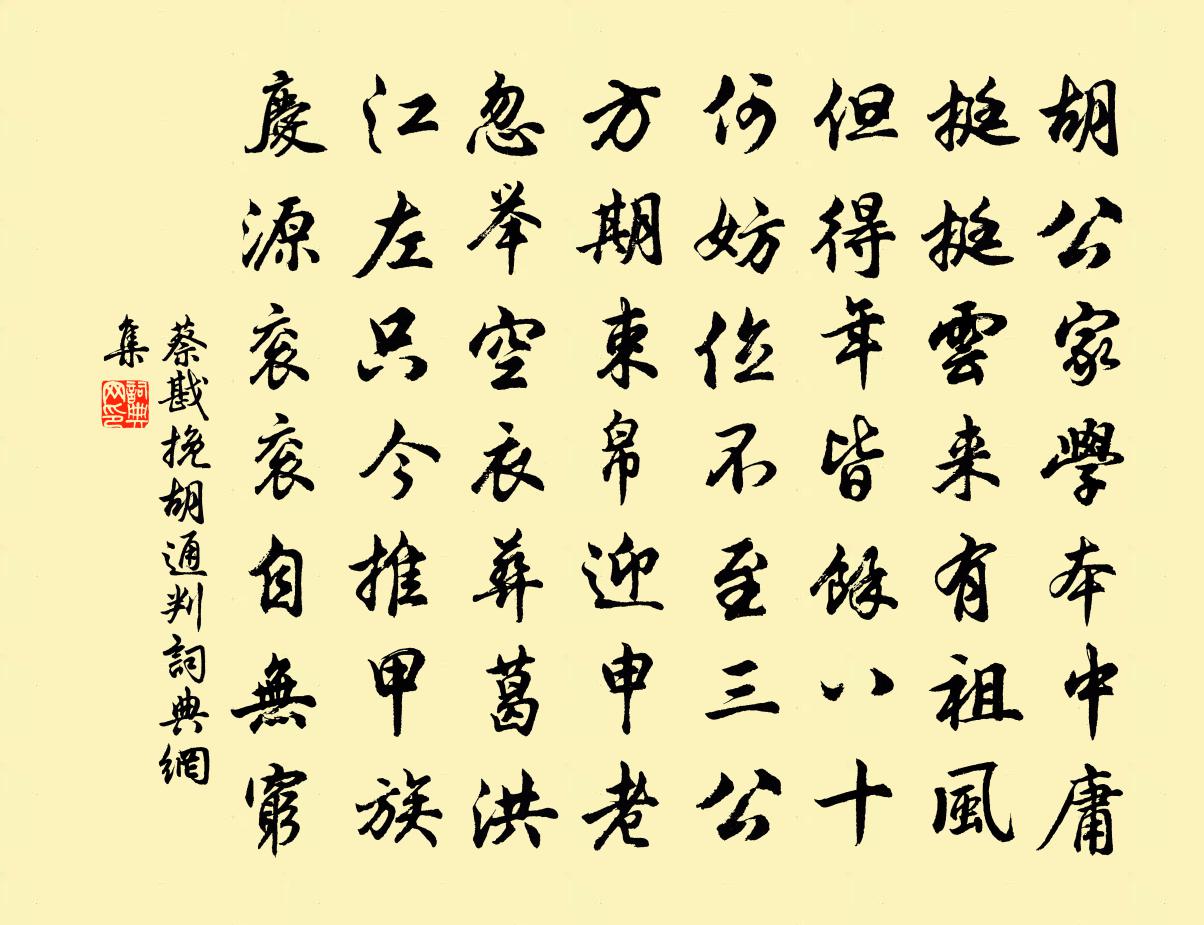 胡公家學本中庸
挺挺雲来有祖風
但得年皆餘八十
何妨位不至三公
方期束帛迎申老
忽举空衣葬葛洪
江左只今推甲族
慶源衮衮自無窮
蔡戡挽胡通判詞典網
集
詞典
网印